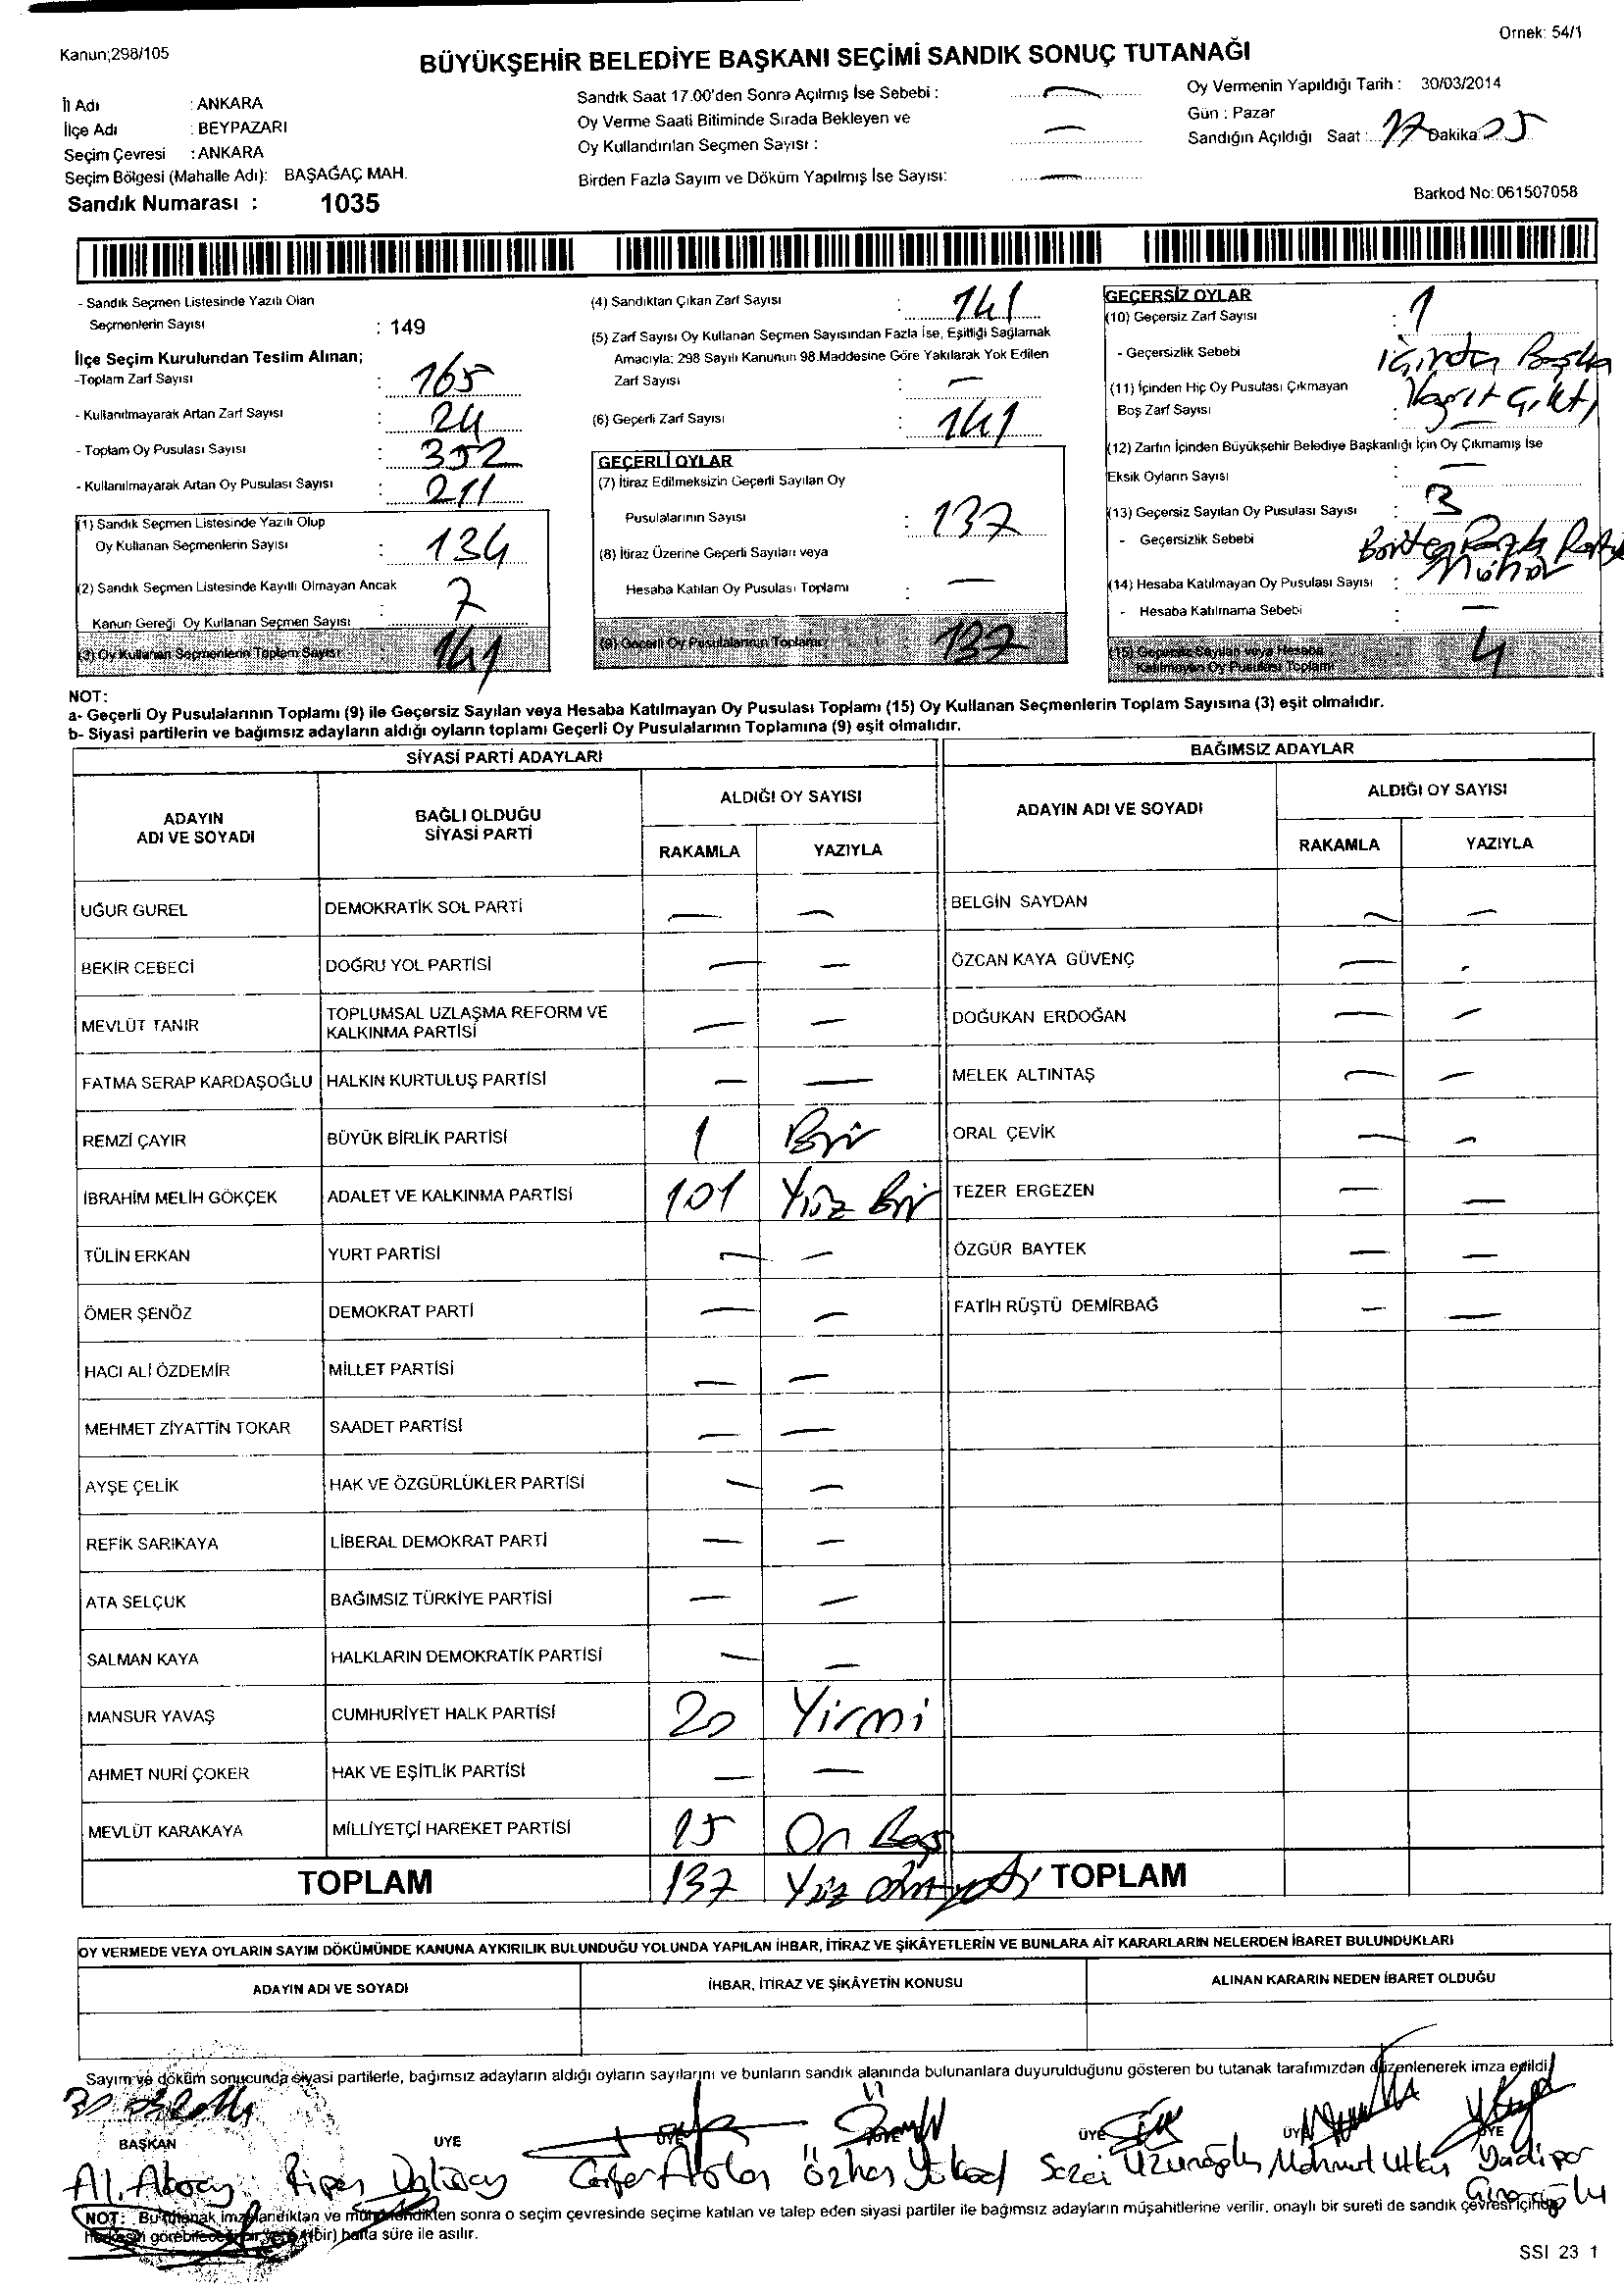 Kanun;298/105
Ornek: 54/1
BÜYÜKŞEHİR BELEDİYE BAŞKANI SEÇİMİ SANDIK SONUÇ TUTANAĞI
İl Adı : ANKARA
İlçe Adı : BEYPAZARI
Seçim Çevresi : ANKARA
Seçim Bölgesi (Mahalle Adı): BAŞAĞAÇ MAH.
Sandık Numarası : 1035
Sandık Saat 17.00'den Sonra Açılmış İse Sebebi : —
Oy Verme Saati Bitiminde Sırada Bekleyen ve
Oy Kullandırılan Seçmen Sayısı : —
Birden Fazla Sayım ve Döküm Yapılmış İse Sayısı: —
Oy Vermenin Yapıldığı Tarih : 30/03/2014
Gün : Pazar
Sandığın Açıldığı Saat : 17 Dakika 25
Barkod No: 061507058
- Sandık Seçmen Listesinde Yazılı Olan
Seçmenlerin Sayısı : 149
İlçe Seçim Kurulundan Teslim Alınan;
-Toplam Zarf Sayısı : 165
- Kullanılmayarak Artan Zarf Sayısı : 24
- Toplam Oy Pusulası Sayısı : 352
- Kullanılmayarak Artan Oy Pusulası Sayısı : 211
(1) Sandık Seçmen Listesinde Yazılı Olup
Oy Kullanan Seçmenlerin Sayısı : 134
(2) Sandık Seçmen Listesinde Kayıtlı Olmayan Ancak
Kanun Gereği Oy Kullanan Seçmen Sayısı : 7
(3) Oy Kullanan Seçmenlerin Toplam Sayısı : 141
(4) Sandıktan Çıkan Zarf Sayısı : 141
(5) Zarf Sayısı Oy Kullanan Seçmen Sayısından Fazla İse, Eşitliği Sağlamak
Amacıyla; 298 Sayılı Kanunun 98.Maddesine Göre Yakılarak Yok Edilen
Zarf Sayısı : —
(6) Geçerli Zarf Sayısı : 141
GEÇERLİ OYLAR
(7) İtiraz Edilmeksizin Geçerli Sayılan Oy
Pusulalarının Sayısı : 137
(8) İtiraz Üzerine Geçerli Sayılan veya
Hesaba Katılan Oy Pusulası Toplamı : —
(9) Geçerli Oy Pusulalarının Toplamı : 137
GEÇERSİZ OYLAR
(10) Geçersiz Zarf Sayısı : 1
- Geçersizlik Sebebi içinden Başka
Kağıt Çıktı
(11) İçinden Hiç Oy Pusulası Çıkmayan
Boş Zarf Sayısı : —
(12) Zarfın İçinden Büyükşehir Belediye Başkanlığı İçin Oy Çıkmamış İse
Eksik Oyların Sayısı : —
(13) Geçersiz Sayılan Oy Pusulası Sayısı : 3
- Geçersizlik Sebebi
(14) Hesaba Katılmayan Oy Pusulası Sayısı :
- Hesaba Katılmama Sebebi : —
(15) Geçersiz Sayılan veya Hesaba
Katılmayan Oy Pusulası Toplamı 4
NOT:
a- Geçerli Oy Pusulalarının Toplamı (9) ile Geçersiz Sayılan veya Hesaba Katılmayan Oy Pusulası Toplamı (15) Oy Kullanan Seçmenlerin Toplam Sayısına (3) eşit olmalıdır.
b- Siyasi partilerin ve bağımsız adayların aldığı oyların toplamı Geçerli Oy Pusulalarının Toplamına (9) eşit olmalıdır.
SİYASİ PARTİ ADAYLARI
ADAYIN ADI VE SOYADI BAĞLI OLDUĞU SİYASİ PARTİ ALDIĞI OY SAYISI
RAKAMLA YAZIYLA
UĞUR GUREL DEMOKRATİK SOL PARTİ — —
BEKİR CEBECİ DOĞRU YOL PARTİSİ — —
MEVLÜT TANIR TOPLUMSAL UZLAŞMA REFORM VE KALKINMA PARTİSİ — —
FATMA SERAP KARDAŞOĞLU HALKIN KURTULUŞ PARTİSİ — —
REMZİ ÇAYIR BÜYÜK BİRLİK PARTİSİ 1 Bir
İBRAHİM MELİH GÖKÇEK ADALET VE KALKINMA PARTİSİ 101 Yüz Bir
TÜLİN ERKAN YURT PARTİSİ — —
ÖMER ŞENÖZ DEMOKRAT PARTİ — —
HACI ALİ ÖZDEMİR MİLLET PARTİSİ — —
MEHMET ZİYATTİN TOKAR SAADET PARTİSİ — —
AYŞE ÇELİK HAK VE ÖZGÜRLÜKLER PARTİSİ — —
REFİK SARIKAYA LİBERAL DEMOKRAT PARTİ — —
ATA SELÇUK BAĞIMSIZ TÜRKİYE PARTİSİ — —
SALMAN KAYA HALKLARIN DEMOKRATİK PARTİSİ — —
MANSUR YAVAŞ CUMHURİYET HALK PARTİSİ 20 Yirmi
AHMET NURİ ÇOKER HAK VE EŞİTLİK PARTİSİ — —
MEVLÜT KARAKAYA MİLLİYETÇİ HAREKET PARTİSİ 15 On Beş
TOPLAM 137 Yüz otuzyedi
BAĞIMSIZ ADAYLAR
ADAYIN ADI VE SOYADI ALDIĞI OY SAYISI
RAKAMLA YAZIYLA
BELGİN SAYDAN — —
ÖZCAN KAYA GÜVENÇ — —
DOĞUKAN ERDOĞAN — —
MELEK ALTINTAŞ — —
ORAL ÇEVİK — —
TEZER ERGEZEN — —
ÖZGÜR BAYTEK — —
FATİH RÜŞTÜ DEMİRBAĞ — —
TOPLAM
OY VERMEDE VEYA OYLARIN SAYIM DÖKÜMÜNDE KANUNA AYKIRILIK BULUNDUĞU YOLUNDA YAPILAN İHBAR, İTİRAZ VE ŞİKÂYETLERİN VE BUNLARA AİT KARARLARIN NELERDEN İBARET BULUNDUKLARI
ADAYIN ADI VE SOYADI İHBAR, İTİRAZ VE ŞİKÂYETİN KONUSU ALINAN KARARIN NEDEN İBARET OLDUĞU
Sayım ve döküm sonucunda siyasi partilerle, bağımsız adayların aldığı oyların sayılarını ve bunların sandık alanında bulunanlara duyurulduğunu gösteren bu tutanak tarafımızdan düzenlenerek imza edildi.
BAŞKAN UYE ÜYE ÜYE ÜYE ÜYE ÜYE
Özkan Sezai Mahmut Utku
NOT: Bu tutanak imzalandıktan ve mühürlendikten sonra o seçim çevresinde seçime katılan ve talep eden siyasi partiler ile bağımsız adayların müşahitlerine verilir, onaylı bir sureti de sandık çevresi içinde
herkesin görebileceği bir yere (bir) hafta süre ile asılır.
SSI 23 1